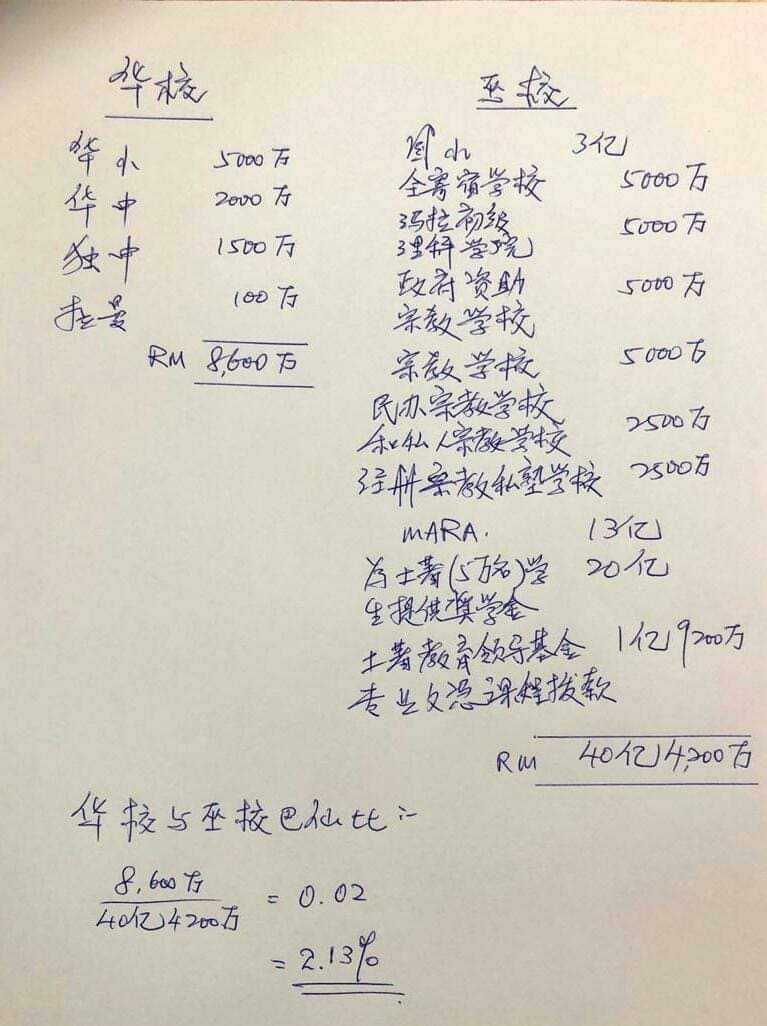 华校
华小 5000万
华中 2000万
独中 1500万
拉曼 100万
RM 8,600万
巫校
国小 3亿
全寄宿学校 5000万
玛拉初级
理科学院 5000万
政府资助 5000万
宗教学校
宗教学校 5000万
民办宗教学校
和私人宗教学校 2500万
注册宗教私塾学校 2500万
MARA. 13亿
为土著(5万名)学 20亿
生提供奖学金
土著教育领导基金 1亿9200万
专业文凭课程拨款
RM 40亿4,200万
华校与巫校巴仙比:-
8,600万
40亿4200万
= 0.02
= 2.13%